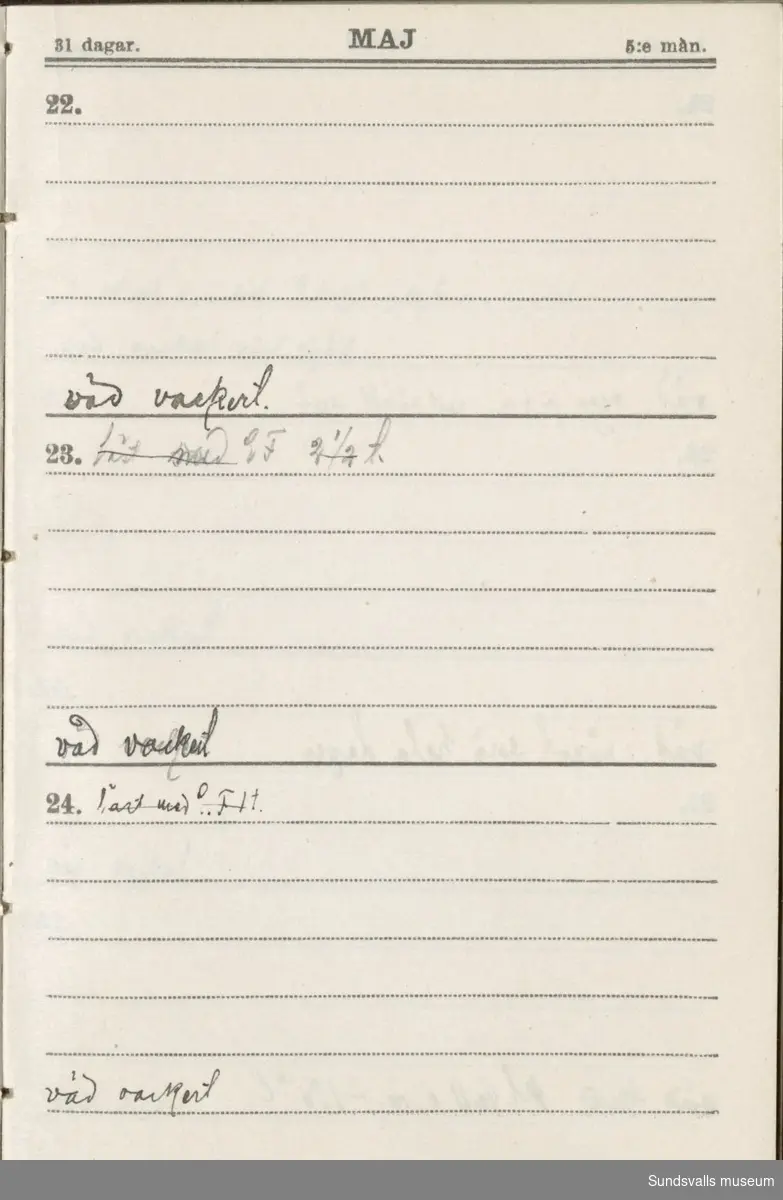 31 dagar. MAJ 5:e mån.
22.
väd vackert.
23. läst med F 2 1/2 t.
väd vackert
24. läst med F 1 t.
väd vackert
Sundsvalls museum